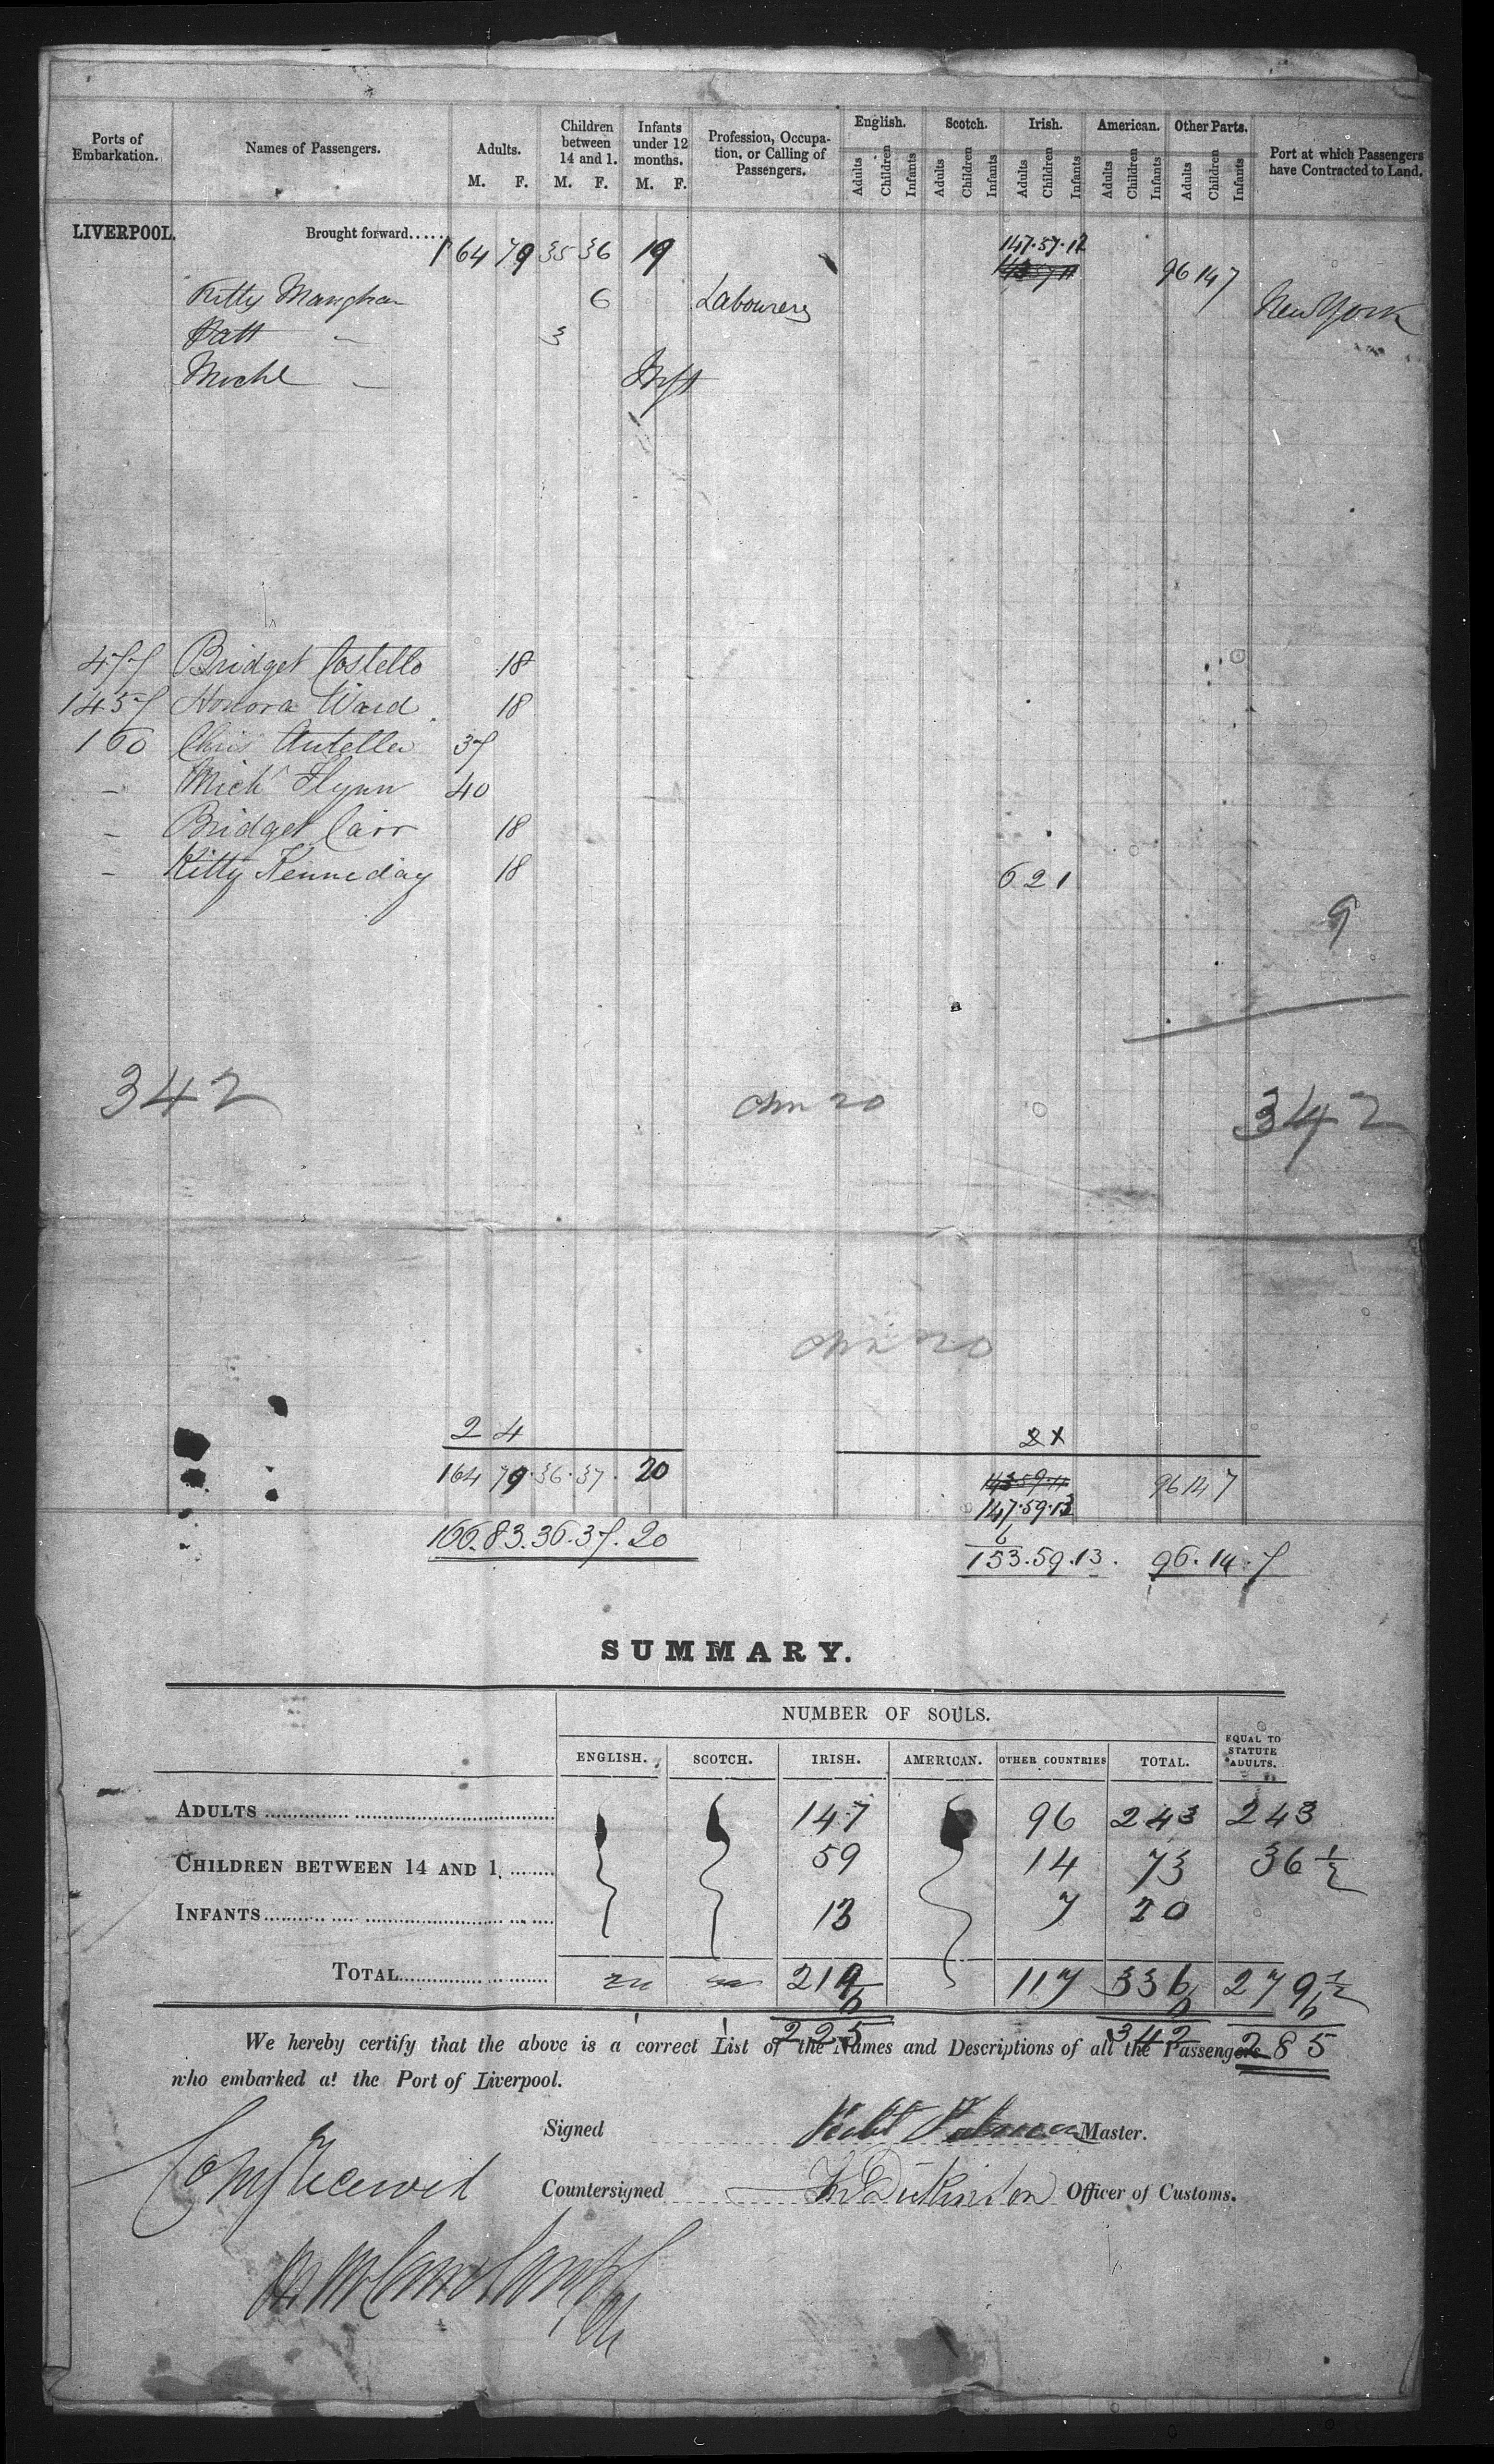 Ports of Embarkation. Names of Passengers. Adults. M. F. Children between 14 and 1. M. F. Infants under 12 months. M. F. Profession, Occupation, or Calling of Passengers. English. Adults Children Infants Scotch. Adults Children Infants Irish. Adults Children Infants American. Adults Children Infants Other Parts. Adults Children Infants Port at which Passengers have Contracted to Land.
LIVERPOOL. Brought forward...... 164 79 35 36 19 147. 57. 12 96 14 7
Kitty Manghan 6 Labourers New York
Patt - 3
Michl - Inft
477 Bridget Costello 18
1457 Honora Ward 18
160 Chris 37
- Mich Flynn 40
- Bridget Carr 18
- Kitty Kenneday 18 6 2 1
9
342 342
2 4 2
164 79. 36. 37. 20 143 59. 11 96 14 7
147. 59. 13
6
166. 83. 36. 37. 20 153. 59. 13. 96. 14. 7
SUMMARY.
NUMBER OF SOULS.
ENGLISH. SCOTCH. IRISH. AMERICAN. OTHER COUNTRIES TOTAL. EQUAL TO STATUTE ADULTS.
ADULTS 147 96 243 243
CHILDREN BETWEEN 14 AND 1. 59 14 73 36 1/2
INFANTS 13 7 20
TOTAL 219 117 336 279 1/2
6 6 6
225 342 285
We hereby certify that the above is a correct List of the Names and Descriptions of all the Passengers
who embarked at the Port of Liverpool.
Signed Robt Master.
Countersigned Dickinson Officer of Customs.
Copy Received